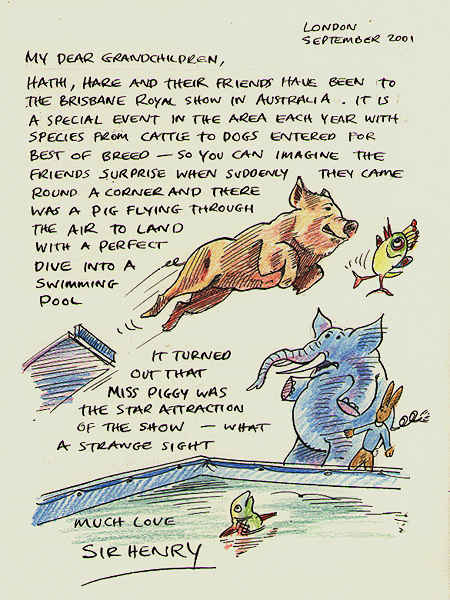 LONDON
SEPTEMBER 2001
MY DEAR GRANDCHILDREN,
HATHI, HARE AND THEIR FRIENDS HAVE BEEN TO
THE BRISBANE ROYAL SHOW IN AUSTRALIA. IT IS
A SPECIAL EVENT IN THE AREA EACH YEAR WITH
SPECIES FROM CATTLE TO DOGS ENTERED FOR
BEST OF BREED – SO YOU CAN IMAGINE THE
FRIENDS SURPRISE WHEN SUDDENLY THEY CAME
ROUND A CORNER AND THERE
WAS A PIG FLYING THROUGH
THE AIR TO LAND
WITH A PERFECT
DIVE INTO A
SWIMMING
POOL
IT TURNED
OUT THAT
MISS PIGGY WAS
THE STAR ATTRACTION
OF THE SHOW – WHAT
A STRANGE SIGHT
MUCH LOVE
SIR HENRY